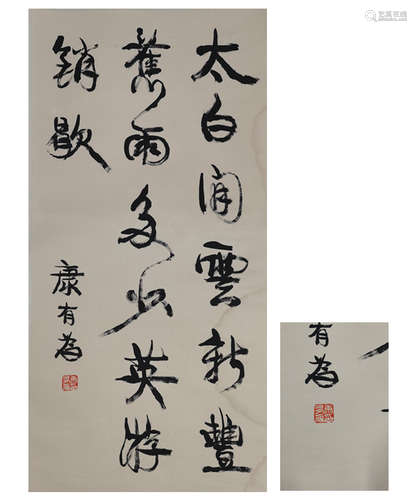 太白閒雲新豐
舊雨多少英游
銷歇
康有為
有為